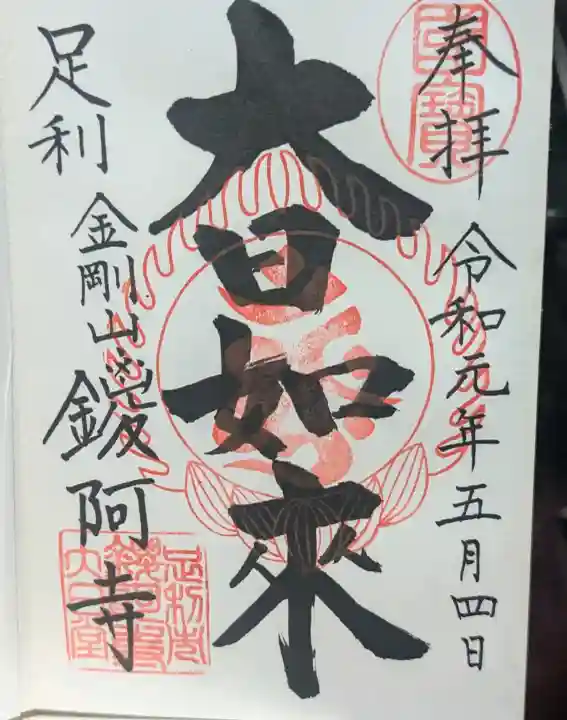 奉拝
國寶
令和元年五月四日
大日如來
足利
金剛山鑁阿寺